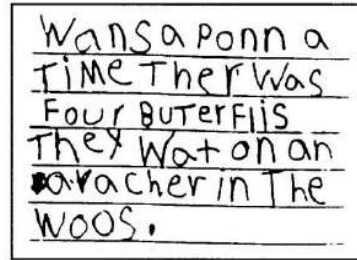 Wansaponn a
TiMe Ther Was
Four BuTerFlis
They Wat on an
avacher in The
Woos.